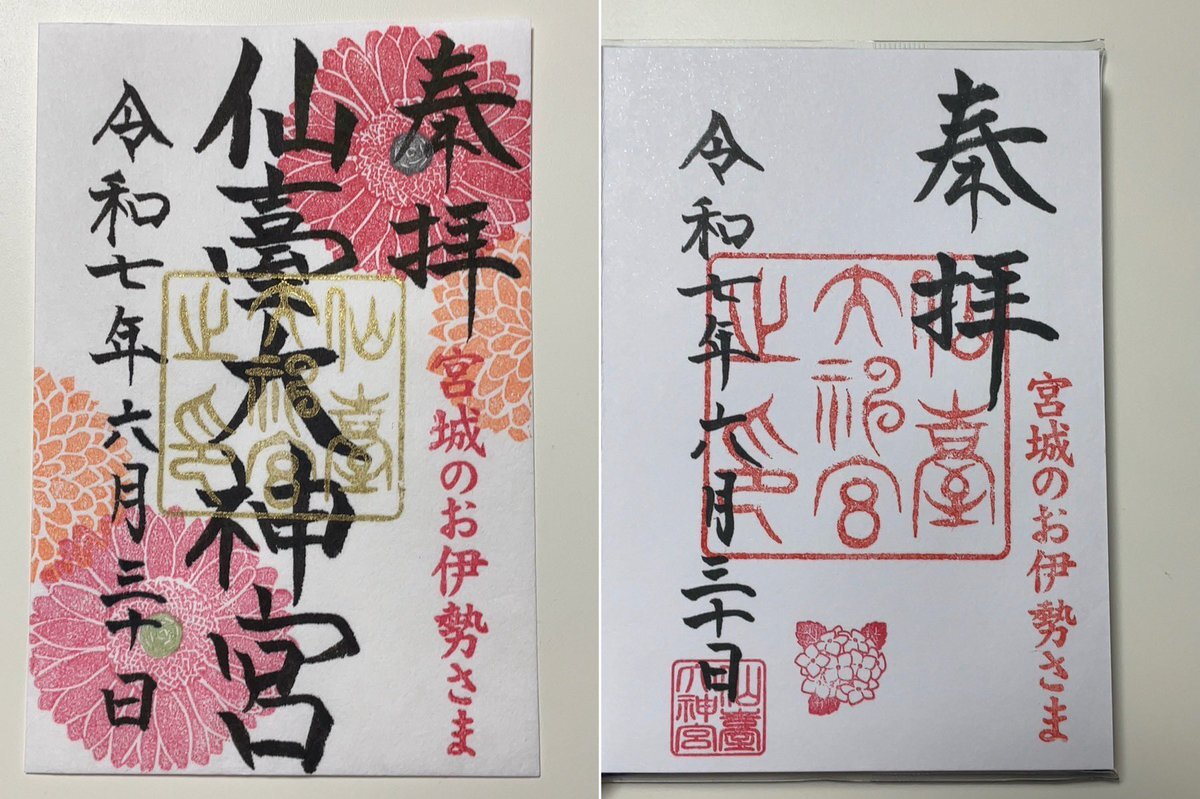 奉拝
宮城のお伊勢さま
仙臺大神宮
仙臺
大神宮
之印
令和七年六月三十日
奉拝
宮城のお伊勢さま
仙臺
大神宮
之印
令和七年六月三十日
仙臺
大神宮